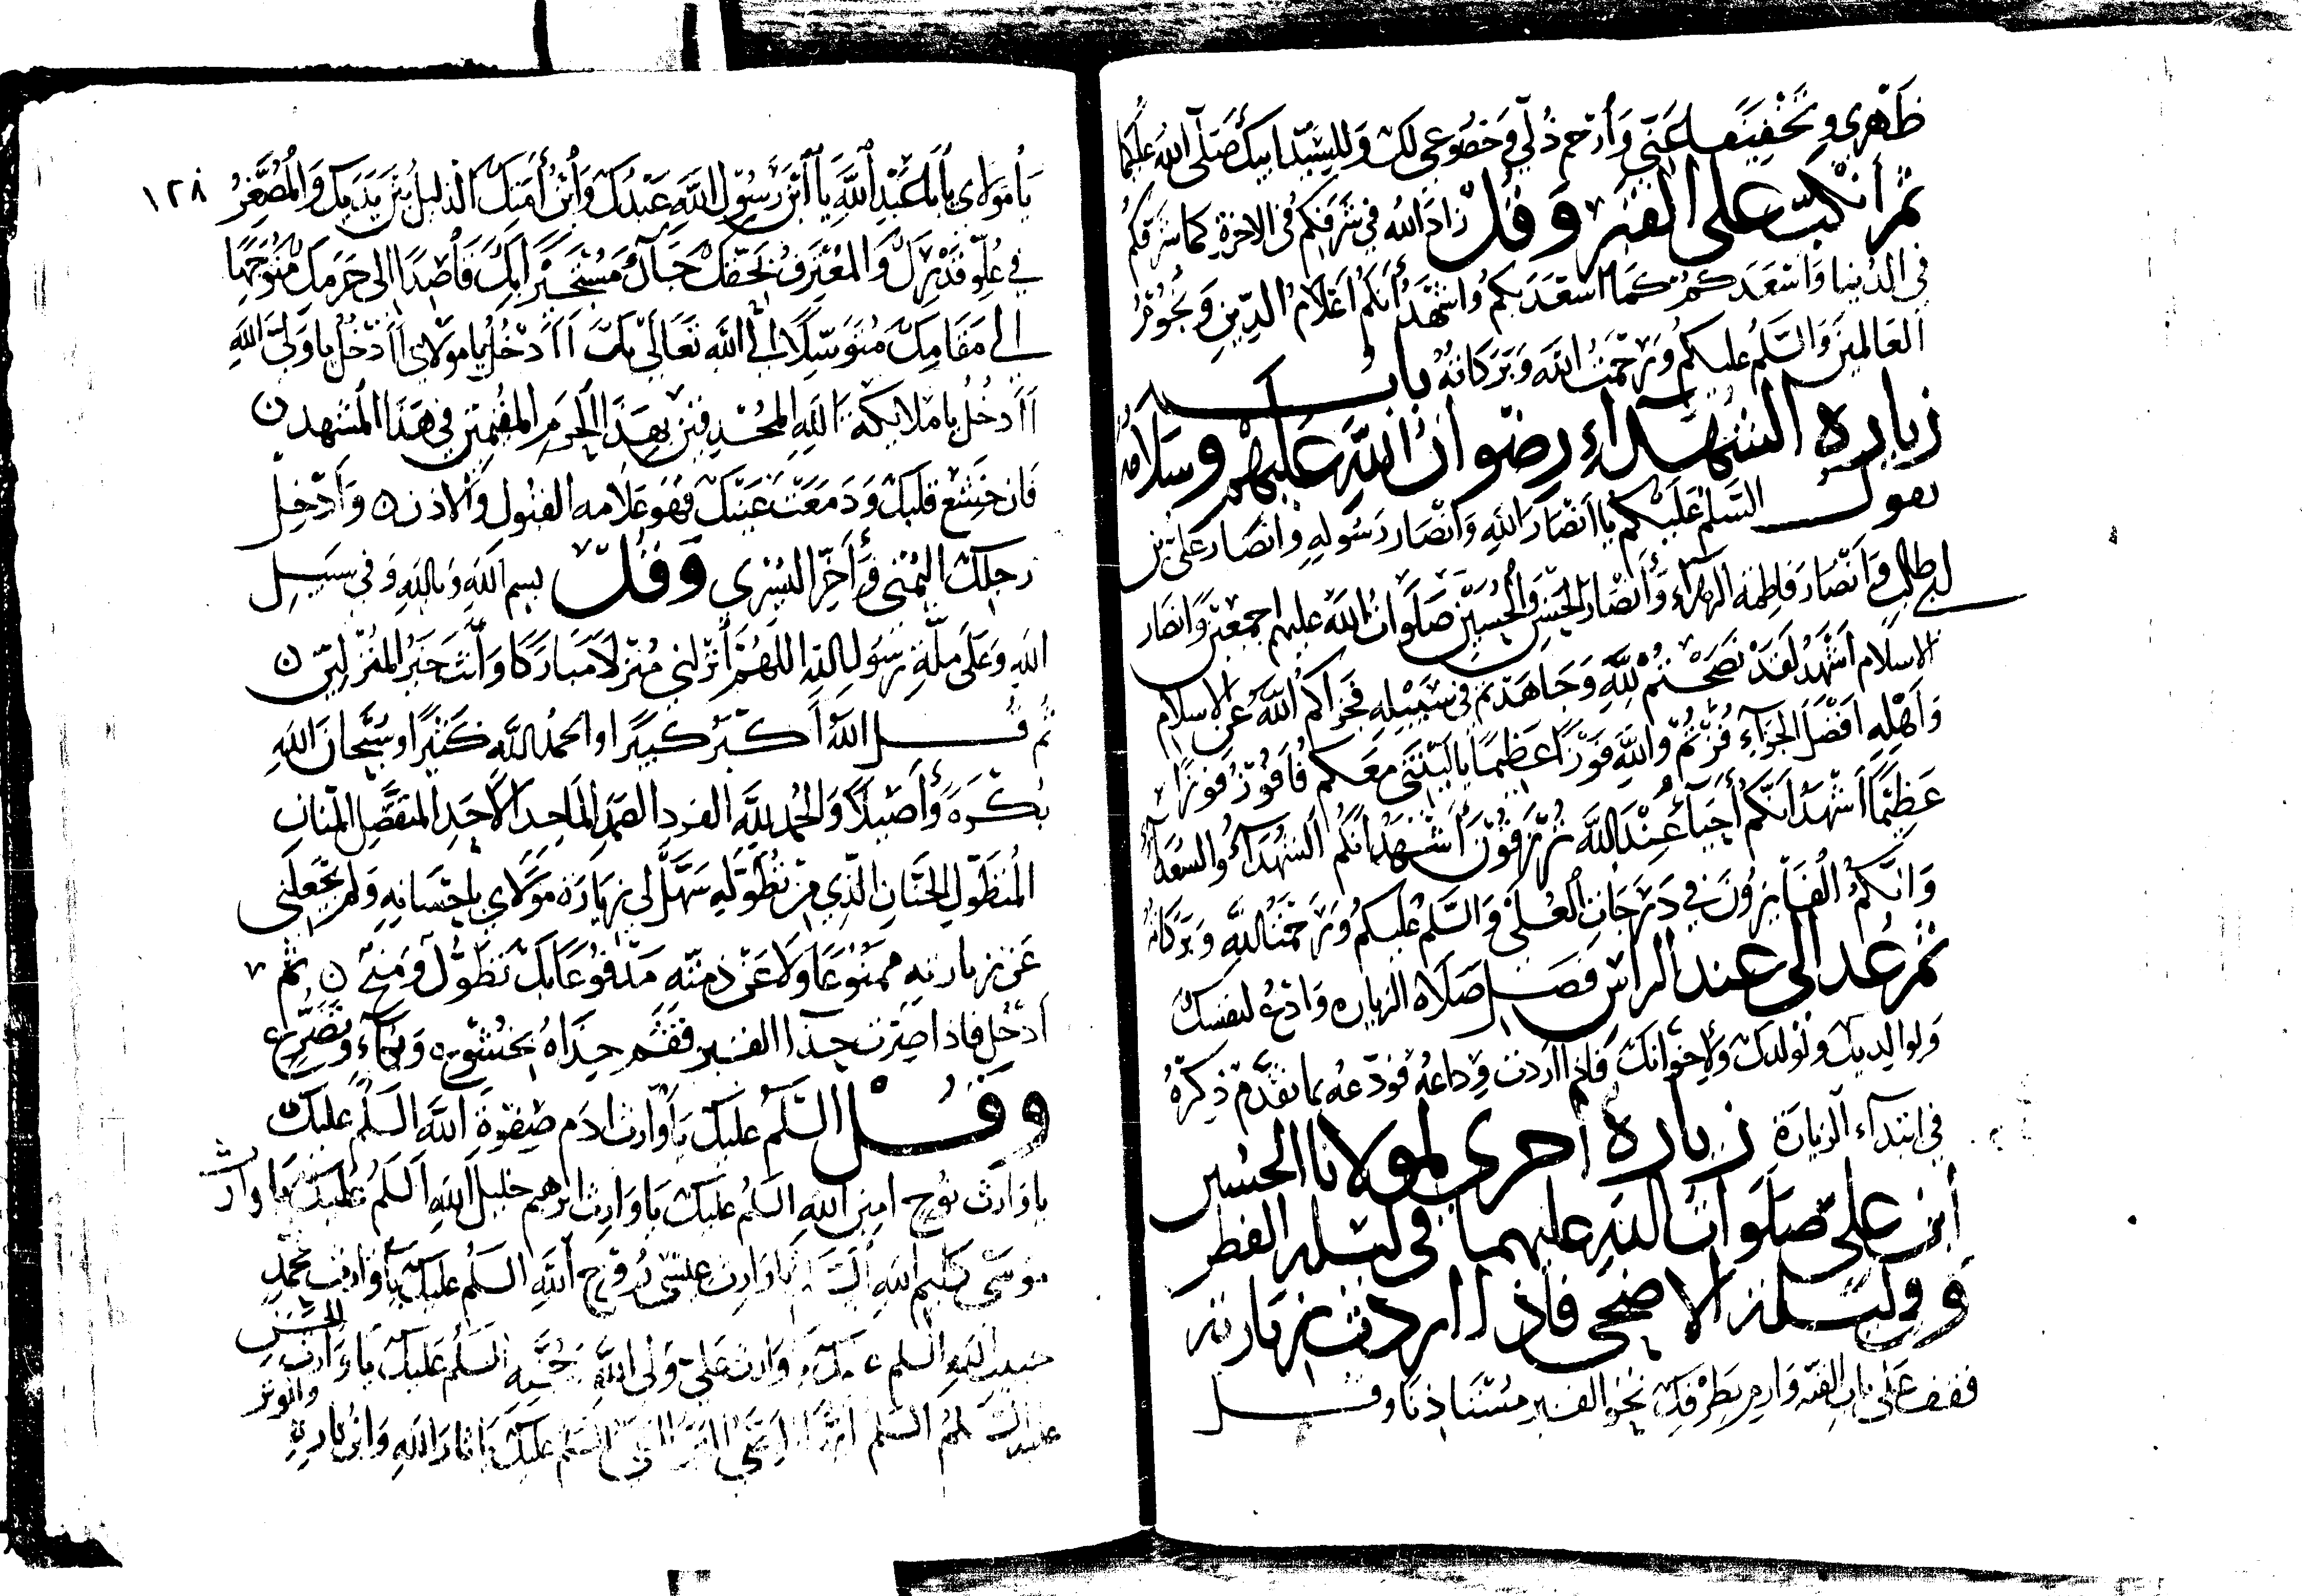 ظهري وتخفيفها عني وارحم ذلي وخضوعي لك وللسيد ابيك صلى الله عليكما
ثم انكب على القبر وقل زاد الله في شرفكم في الاخرة كما شرفكم
في الدنيا واسعدكم كما اسعد بكم واشهد انكم اعلام الدين ونجوم
العالمين والسلم عليكم ورحمت الله وبركاته باب
زيارة الشهداء رضوان الله عليهم وسلامه
تقول السلم عليكم يا انصار الله وانصار رسوله وانصار علي بن
ابي طالب وانصار فاطمة الزهراء وانصار الحسن والحسين صلوات الله عليهم اجمعين وانصار
الاسلام اشهد لقد نصحتم لله وجاهدتم في سبيله فجزاكم الله عن الاسلام
واهله افضل الجزاء فزتم والله فوزا عظيما يا ليتني معكم فافوز فوزا
عظيما اشهد انكم احياء عند الله ترزقون اشهد انكم الشهداء والسعداء
وانكم الفايزون في درجات العلى والسلم عليكم ورحمت الله وبركاته
ثم عد الى عند الراس فصل صلاة الزيارة وادع لنفسك
ولوالديك ولولدك ولاخوانك فاذا اردت وداعه فودعه بما تقدم ذكره
في ابتداء الزيارة زيارة اخرى لمولانا الحسين
ابن علي صلوات الله عليهما في ليلة الفطر
وفي ليلة الاضحى فاذا اردت زيارته
فقف على باب القبة وارم بطرفك نحو القبر مستاذنا وقل
يا مولاي يا ابا عبد الله يا ابن رسول الله عبدك وابن امتك الذليل بين يديك والمصغر ١٢٨
في علو قدرك والمعترف بحقك جاك مستجيرا بك قاصدا الى حرمك متوجها
الى مقامك متوسلا الى الله تعالى بك اادخل يا مولاي اادخل يا ولي الله
اادخل يا ملايكة الله المحدقين بهذا الحرم المقيمين في هذا المشهد
فان خشع قلبك ودمعت عينك فهو علامة القبول والاذن وادخل
رجلك اليمنى واخر اليسرى وقل بسم الله وبالله وفي سبيل
الله وعلى ملة رسول الله اللهم انزلني منزلا مباركا وانت خير المنزلين
ثم قل الله اكبر كبيرا والحمد لله كثيرا وسبحان الله
بكرة واصيلا والحمد لله الفرد الصمد الماجد الاحد المتفضل المنان
المتطول الحنان الذي من تطوله سهل لي زيارة مولاي باحسانه ولم يجعلني
عن زيارته ممنوعا ولا عن ذمته مدفوعا بل تطول ومنح ثم
ادخل فاذا صرت حذا القبر فقم حذاه بخشوع وبكاء وتضرع
وقل السلم عليك يا وارث ادم صفوة الله السلم عليك
يا وارث نوح امين الله السلم عليك يا وارث ابرهيم خليل الله السلم عليك يا وارث
موسى كليم الله يا وارث عيسى روح الله السلم عليك يا وارث محمد
حبيب الله السلم وارث علي ولي الله السلم عليك يا وارث الحسن
السلم السلم عليك يا ثار الله وابن ثاره والوتر